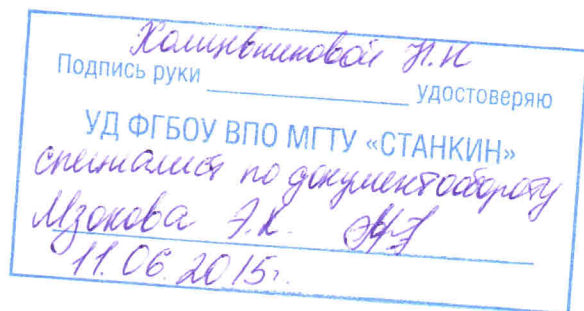 Н.Н
Подпись руки удостоверяю
УД ФГБОУ ВПО МГТУ «СТАНКИН»
специалист по документообороту
Мзокова Э.К.
11.06.2015г.